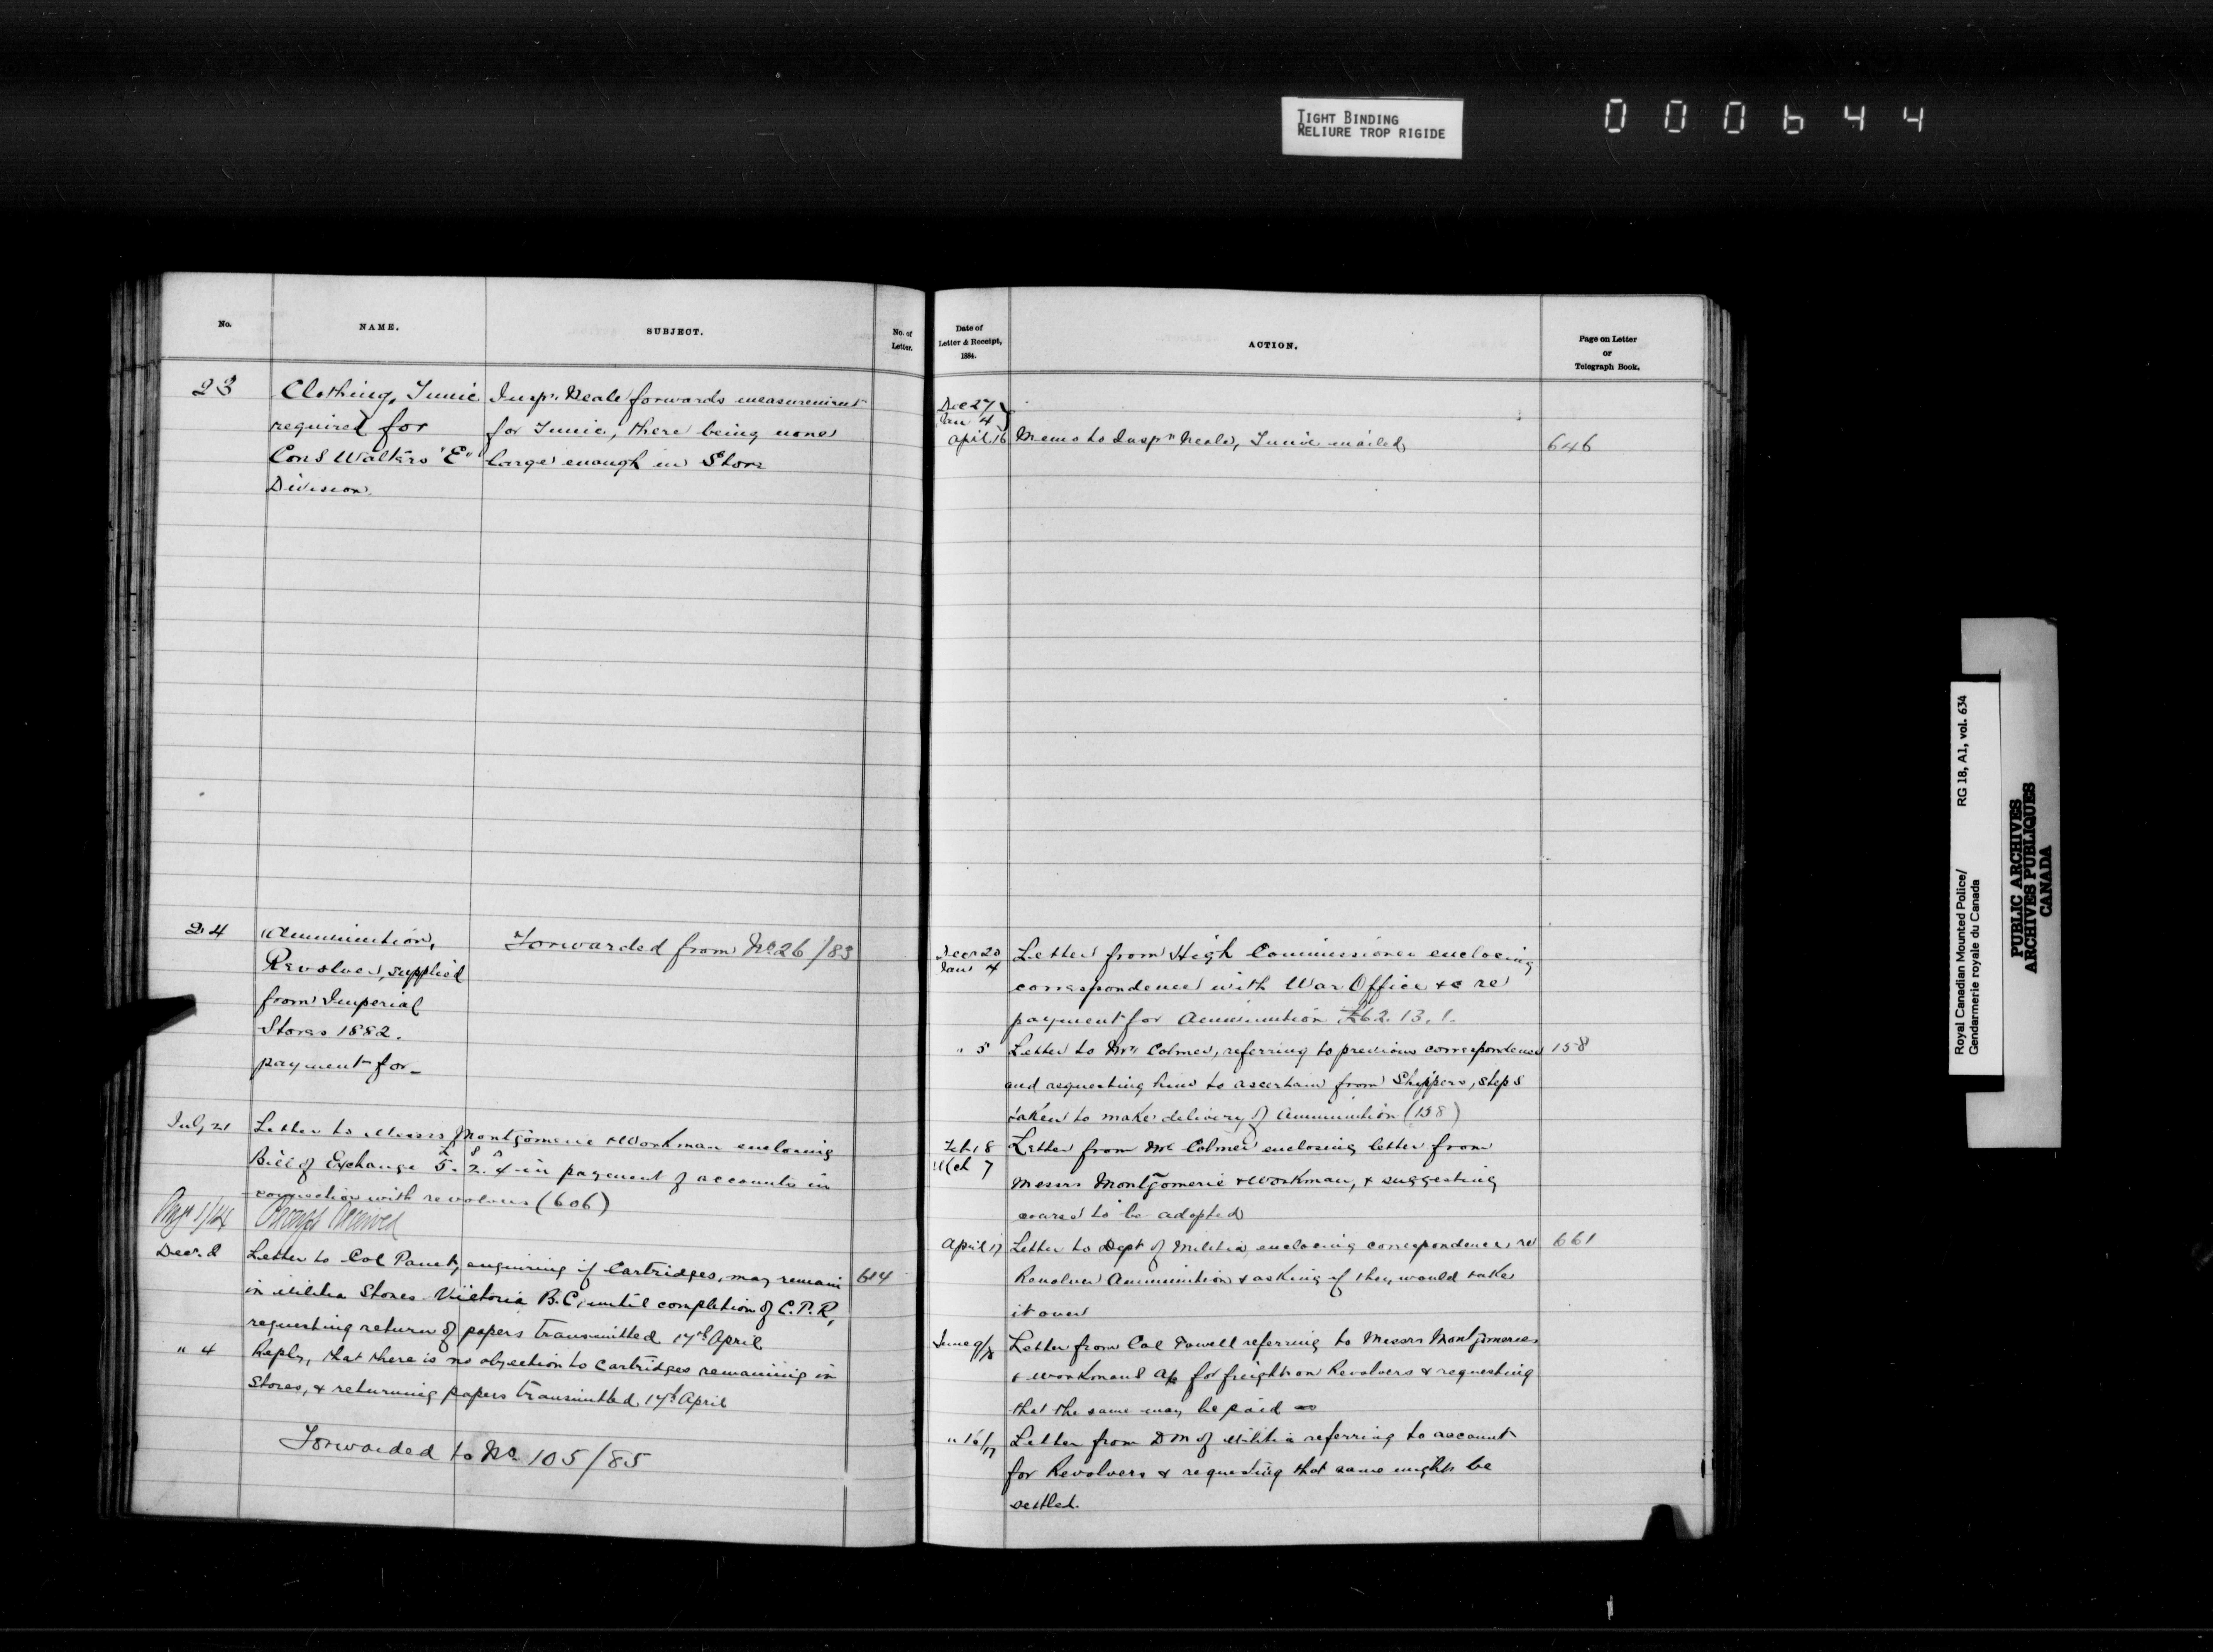 TIGHT BINDING
RELIURE TROP RIGIDE
000644
No.
NAME.
SUBJECT.
No. of
Letter.
23
Clothing, Tunic
required for
Cons Walters "E"
Division.
Insp. Neale forwards measurement
for Tunic, there being none
large enough in Store
24
Ammunition,
Revolver, supplied
from Imperial
Stores 1882.
payment for
Forwarded from No 26/83
July 21
Letter to Messrs Montgomerie & Workman enclosing
Bill of Exchange 5. 2. 4 in payment of accounts in
connection with revolvers (606)
Receipt Received
Decr. 2
Letter to Col Panet, enquiring if Cartridges, may remain
in Militia Stores Victoria B.C, until completion of C.P.R,
requesting return of papers transmitted 17th April
614
" 4
Reply, that there is no objection to cartridges remaining in
Stores, & returning papers transmitted 17th April
Forwarded to No. 105/85
Date of
Letter & Receipt,
1884.
ACTION.
Page on Letter
or
Telegraph Book.
Dec 27
Jan 4
April 16
Memo to Inspr Neale, Tunic mailed
646
Decr 20
Jan 4
Letter from High Commissioner enclosing
correspondence with War Office &c re
payment for Ammunition £62. 13. 1.
" 5
Letter to Mr Colmer, referring to previous correspondence
158
and requesting him to ascertain from Shippers, steps
taken to make delivery of Ammunition (158)
Feb 18
Mch 7
Letter from Mr Colmer enclosing letter from
Messrs Montgomerie & Workman, & suggesting
course to be adopted
April 17
Letter to Dept of Militia enclosing correspondence, re
661
Revolver Ammunition & asking if they would take
it over
June 9/
Letter from Col Powell referring to Messrs Montgomerie
& Workmans a/c for freight on Revolvers & requesting
that the same may be paid
" 16/17
Letter from DM of Militia referring to account
for Revolvers & requesting that same might be
settled.
Royal Canadian Mounted Police/
Gendarmerie royale du Canada
RG 18, A1, vol. 634
PUBLIC ARCHIVES
ARCHIVES PUBLIQUES
CANADA